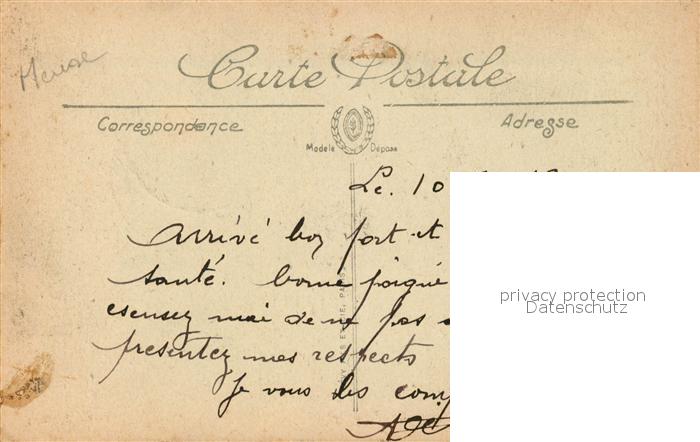 Meuse
Carte Postale
Correspondance
Adresse
Modèle Déposé
Le. 10
Arrivé bon port et
santé. bonne poigné
escusez moi de ne pas
presentez mes respects
Je vous les com
privacy protection
Datenschutz